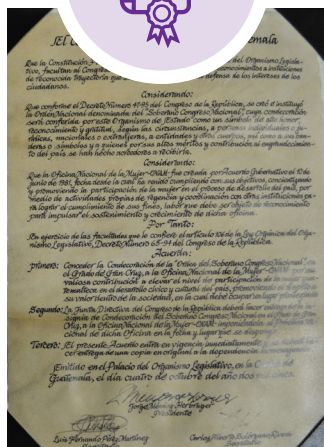 El C emala
Que la Constitución del Organismo Legisla-
tivo, facultan al Congreso reconocimientos a instituciones
de reconocida trayectoria que defensa de los intereses de los
ciudadanos.
Considerando:
Que conforme el Decreto Número 47-95 del Congreso de la República, se creó e instituyó
la Orden Nacional denominada del "Soberano Congreso Nacional", cuya condecoración
será conferida por este Organismo del Estado como un símbolo de alto honor,
reconocimiento y gratitud, según las circunstancias, a personas individuales o ju-
rídicas, nacionales o extranjeras, a entidades y otros cuerpos, así como a sus ban-
deras o símbolos y a quienes por sus altos méritos y contribución al engrandecimien-
to del país se han hecho acreedores a recibirla.
Considerando:
Que la Oficina Nacional de la Mujer-ONAM- fue creada por Acuerdo Gubernativo el 10 de
junio de 1981, fecha desde la cual ha venido cumpliendo con sus objetivos, concientizando
y promoviendo la participación de la mujer en el proceso de desarrollo del país, por
medio de actividades propias de gestión y coordinación con otras instituciones pa-
ra lograr el cumplimiento de sus fines, labor que debe ser objeto de reconocimiento
para impulsar el sostenimiento y crecimiento de dicha oficina.
Por Tanto:
En ejercicio de las facultades que le confiere el artículo 106 de la Ley Orgánica del Orga-
nismo Legislativo, Decreto Número 63-94 del Congreso de la República.
Acuerda:
Primero: Conceder la Condecoración de la "Orden del Soberano Congreso Nacional" en
el Grado de Gran Cruz, a la Oficina Nacional de la Mujer-ONAM- por su
valiosa contribución a elevar el nivel de participación de la mujer gua-
temalteca en el desarrollo cívico y cultural del país, promoviendo el
su valor dentro de la sociedad, en la cual debe ocupar un lugar
Segundo: La Junta Directiva del Congreso de la República deberá hacer entrega de la
insignia de Condecoración del Soberano Congreso Nacional en el Grado de Gran
Cruz, a la Oficina Nacional de la Mujer-ONAM- imponiéndosela al
cional de dicha Oficina en la fecha y lugar que se disponga.
Tercero: El presente Acuerdo entra en vigencia inmediatamente y
cer entrega de una copia en original a la dependencia
Emitido en el Palacio del Organismo Legislativo, en la Ciudad de
Guatemala, el día cuatro de octubre del año dos mil
Jorge Méndez Herbruger
Presidente
Luis Fernando Pérez Martínez
Secretario
Carlos Alberto
Secretario